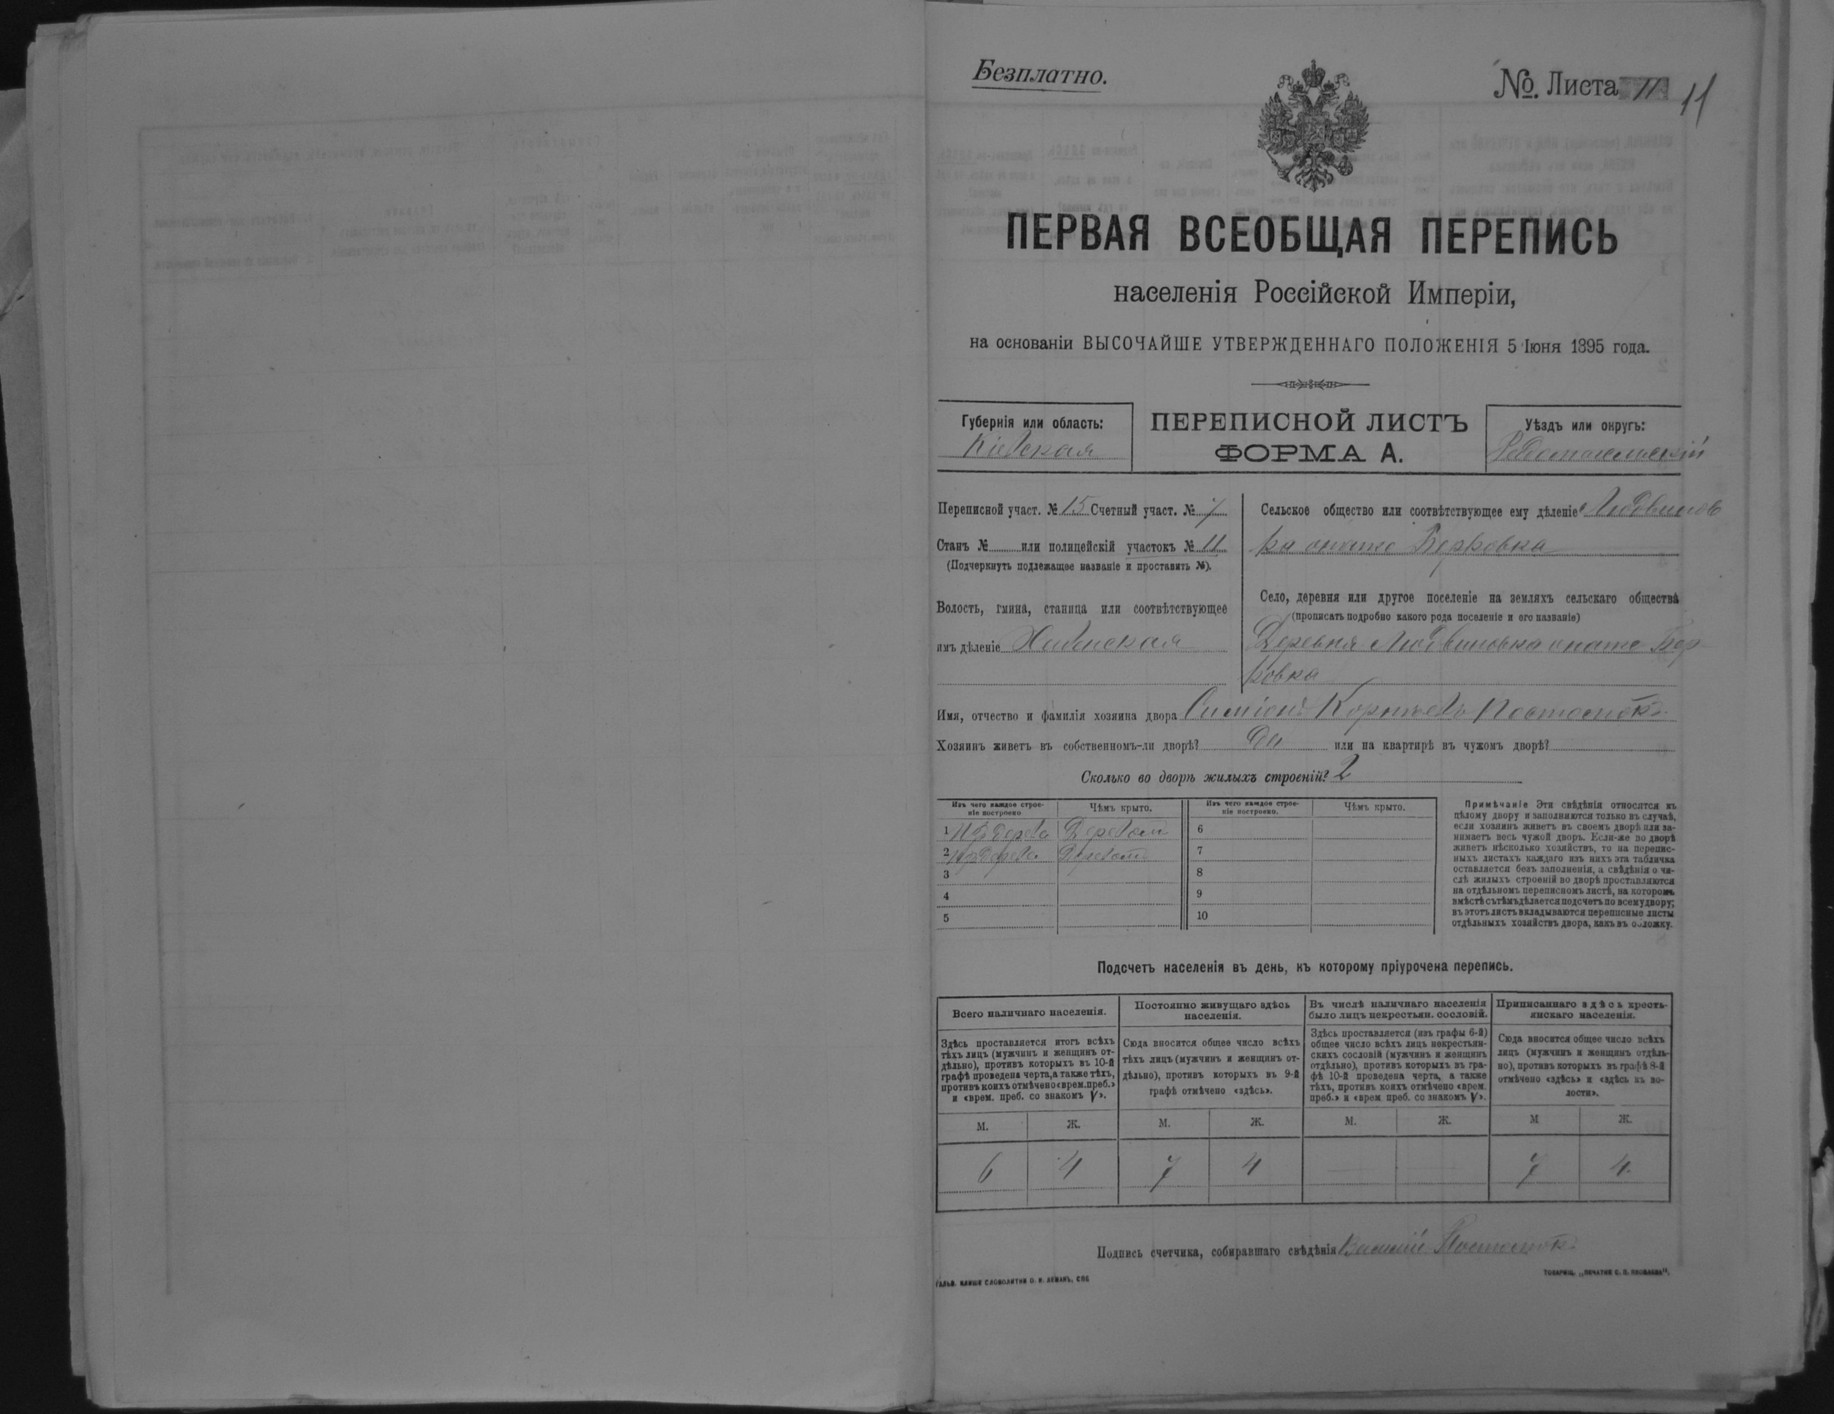 Безплатно.
№. Листа 11 11
ПЕРВАЯ ВСЕОБЩАЯ ПЕРЕПИСЬ
населенія Россійской Имперіи,
на основаніи ВЫСОЧАЙШЕ УТВЕРЖДЕННАГО ПОЛОЖЕНІЯ 5 Іюня 1895 года.
Губернія или область:
Кіевская
ПЕРЕПИСНОЙ ЛИСТЪ
ФОРМА А.
Уѣздъ или округъ:
Радомысльскій
Переписной участ. № 15 Счетный участ. № 7
Станъ № или полицейскій участокъ № 11
(Подчеркнуть подлежащее названіе и проставить №).
Волость, гмина, станица или соотвѣтствующее
имъ дѣленіе Хабенская
Сельское общество или соотвѣтствующее ему дѣленіе Людвинов
ка онаже
Село, деревня или другое поселеніе на земляхъ сельскаго общества
(прописать подробно какого рода поселеніе и его названіе)
Деревня Людвиновка онаже
Имя, отчество и фамилія хозяина двора
Хозяинъ живетъ въ собственномъ-ли дворѣ? Да или на квартирѣ въ чужомъ дворѣ?
Сколько во дворѣ жилыхъ строеній? 2
Изъ чего каждое строе-
ніе построено
Чѣмъ крыто.
1 Из Дерева Деревом
2 Из Дерева Деревом
3
4
5
Изъ чего каждое строе-
ніе построено.
Чѣмъ крыто.
6
7
8
9
10
Примѣчаніе Эти свѣдѣнія относятся къ
цѣлому двору и заполняются только въ случаѣ,
если хозяинъ живетъ въ своемъ дворѣ или за-
нимаетъ весь чужой дворъ. Если-же во дворѣ
живетъ нѣсколько хозяйствъ, то на перепис-
ныхъ листахъ каждаго изъ нихъ эта табличка
оставляется безъ заполненія, а свѣдѣнія о чи-
слѣ жилыхъ строеній во дворѣ проставляются
на отдѣльномъ переписномъ листѣ, на которомъ
вмѣстѣ съ тѣмъ дѣлается подсчетъ по всему двору;
въ этотъ листъ вкладываются переписные листы
отдѣльныхъ хозяйствъ двора, какъ въ обложку.
Подсчетъ населенія въ день, къ которому пріурочена перепись.
Всего наличнаго населенія.
Здѣсь проставляется итогъ всѣхъ
тѣхъ лицъ (мужчинъ и женщинъ от-
дѣльно), противъ которыхъ въ 10-й
графѣ проведена черта, а также тѣхъ,
противъ коихъ отмѣчено «врем. преб.»
и «врем. преб. со знакомъ V».
М. Ж.
6 4
Постоянно живущаго здѣсь
населенія.
Сюда вносится общее число всѣхъ
тѣхъ лицъ (мужчинъ и женщинъ от-
дѣльно), противъ которыхъ въ 9-й
графѣ отмѣчено «здѣсь».
М. Ж.
7 4
Въ числѣ наличнаго населенія
было лицъ некрестьян. сословій.
Здѣсь проставляется (изъ графы 6-й)
общее число всѣхъ лицъ некрестьян-
скихъ сословій (мужчинъ и женщинъ
отдѣльно), противъ которыхъ въ гра-
фѣ 10-й проведена черта, а также
тѣхъ, противъ коихъ отмѣчено «врем.
преб.» и «врем. преб. со знакомъ V».
М. Ж.
Приписаннаго здѣсь кресть-
янскаго населенія.
Сюда вносится общее число всѣхъ
лицъ (мужчинъ и женщинъ отдѣль-
но), противъ которыхъ въ графѣ 8-й
отмѣчено «здѣсь» и «здѣсь къ во-
лости».
М Ж.
7 4
Подпись счетчика, собиравшаго свѣдѣнія
ГАЛЬВ. КЛИШЕ СЛОВОЛИТНИ О. И. ЛЕМАНЪ, СПБ
ТОВАРИЩ. „ПЕЧАТНЯ С. П. ЯКОВЛЕВА“.